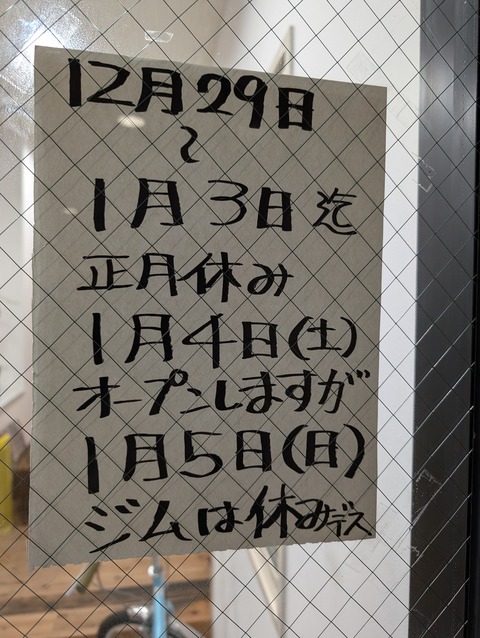 12月29日
〜
1月3日迄
正月休み
1月4日(土)
オープンしますが
1月5日(日)
ジムは休みデス